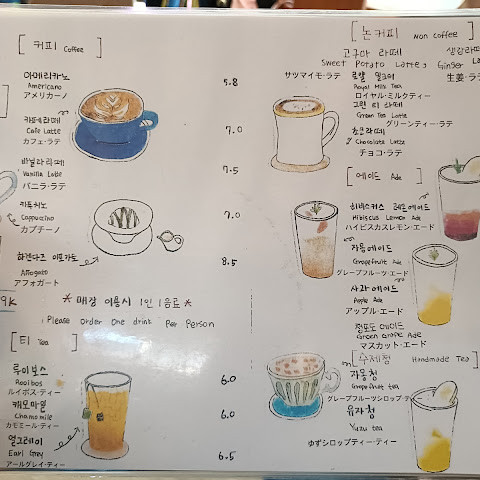 [커피 Coffee]
아메리카노 5.8
Americano
アメリカーノ
카페라떼 7.0
Cafe Latte
カフェ・ラテ
바닐라라떼 7.5
Vanilla Latte
バニラ・ラテ
카푸치노 7.0
Cappuccino
カプチーノ
하겐다즈 아포가토 8.5
Affogato
アフォガート
9K
* 매장 이용시 1인 1음료 *
Please Order One drink Per Person
[티 Tea]
루이보스 6.0
Rooibos
ルイボス・ティー
캐모마일 6.0
Chamomile
カモミール・ティー
얼그레이 6.5
Earl Grey
アールグレイ・ティー
[논커피 Non Coffee]
고구마 라떼
Sweet Potato Latte,
サツマイモ・ラテ
생강라떼
Ginger
生姜・ラテ
로얄 밀크티
Royal Milk Tea
ロイヤル・ミルクティー
그린 티 라떼
Green Tea Latte
グリーンティー・ラテ
초코라떼
Chocolate Latte
チョコ・ラテ
[에이드 Ade]
히비스커스 레몬에이드
Hibiscus Lemon Ade
ハイビスカスレモン・エード
자몽에이드
Grapefruit Ade
グレープフルーツ・エード
사과에이드
Apple Ade
アップル・エード
청포도 에이드
Green Grape Ade
マスカット・エード
[수제청 Handmade Tea]
자몽청
Grapefruit tea
グレープフルーツシロップ・テ
유자청
Yuzu tea
ゆずシロップティー・ティー